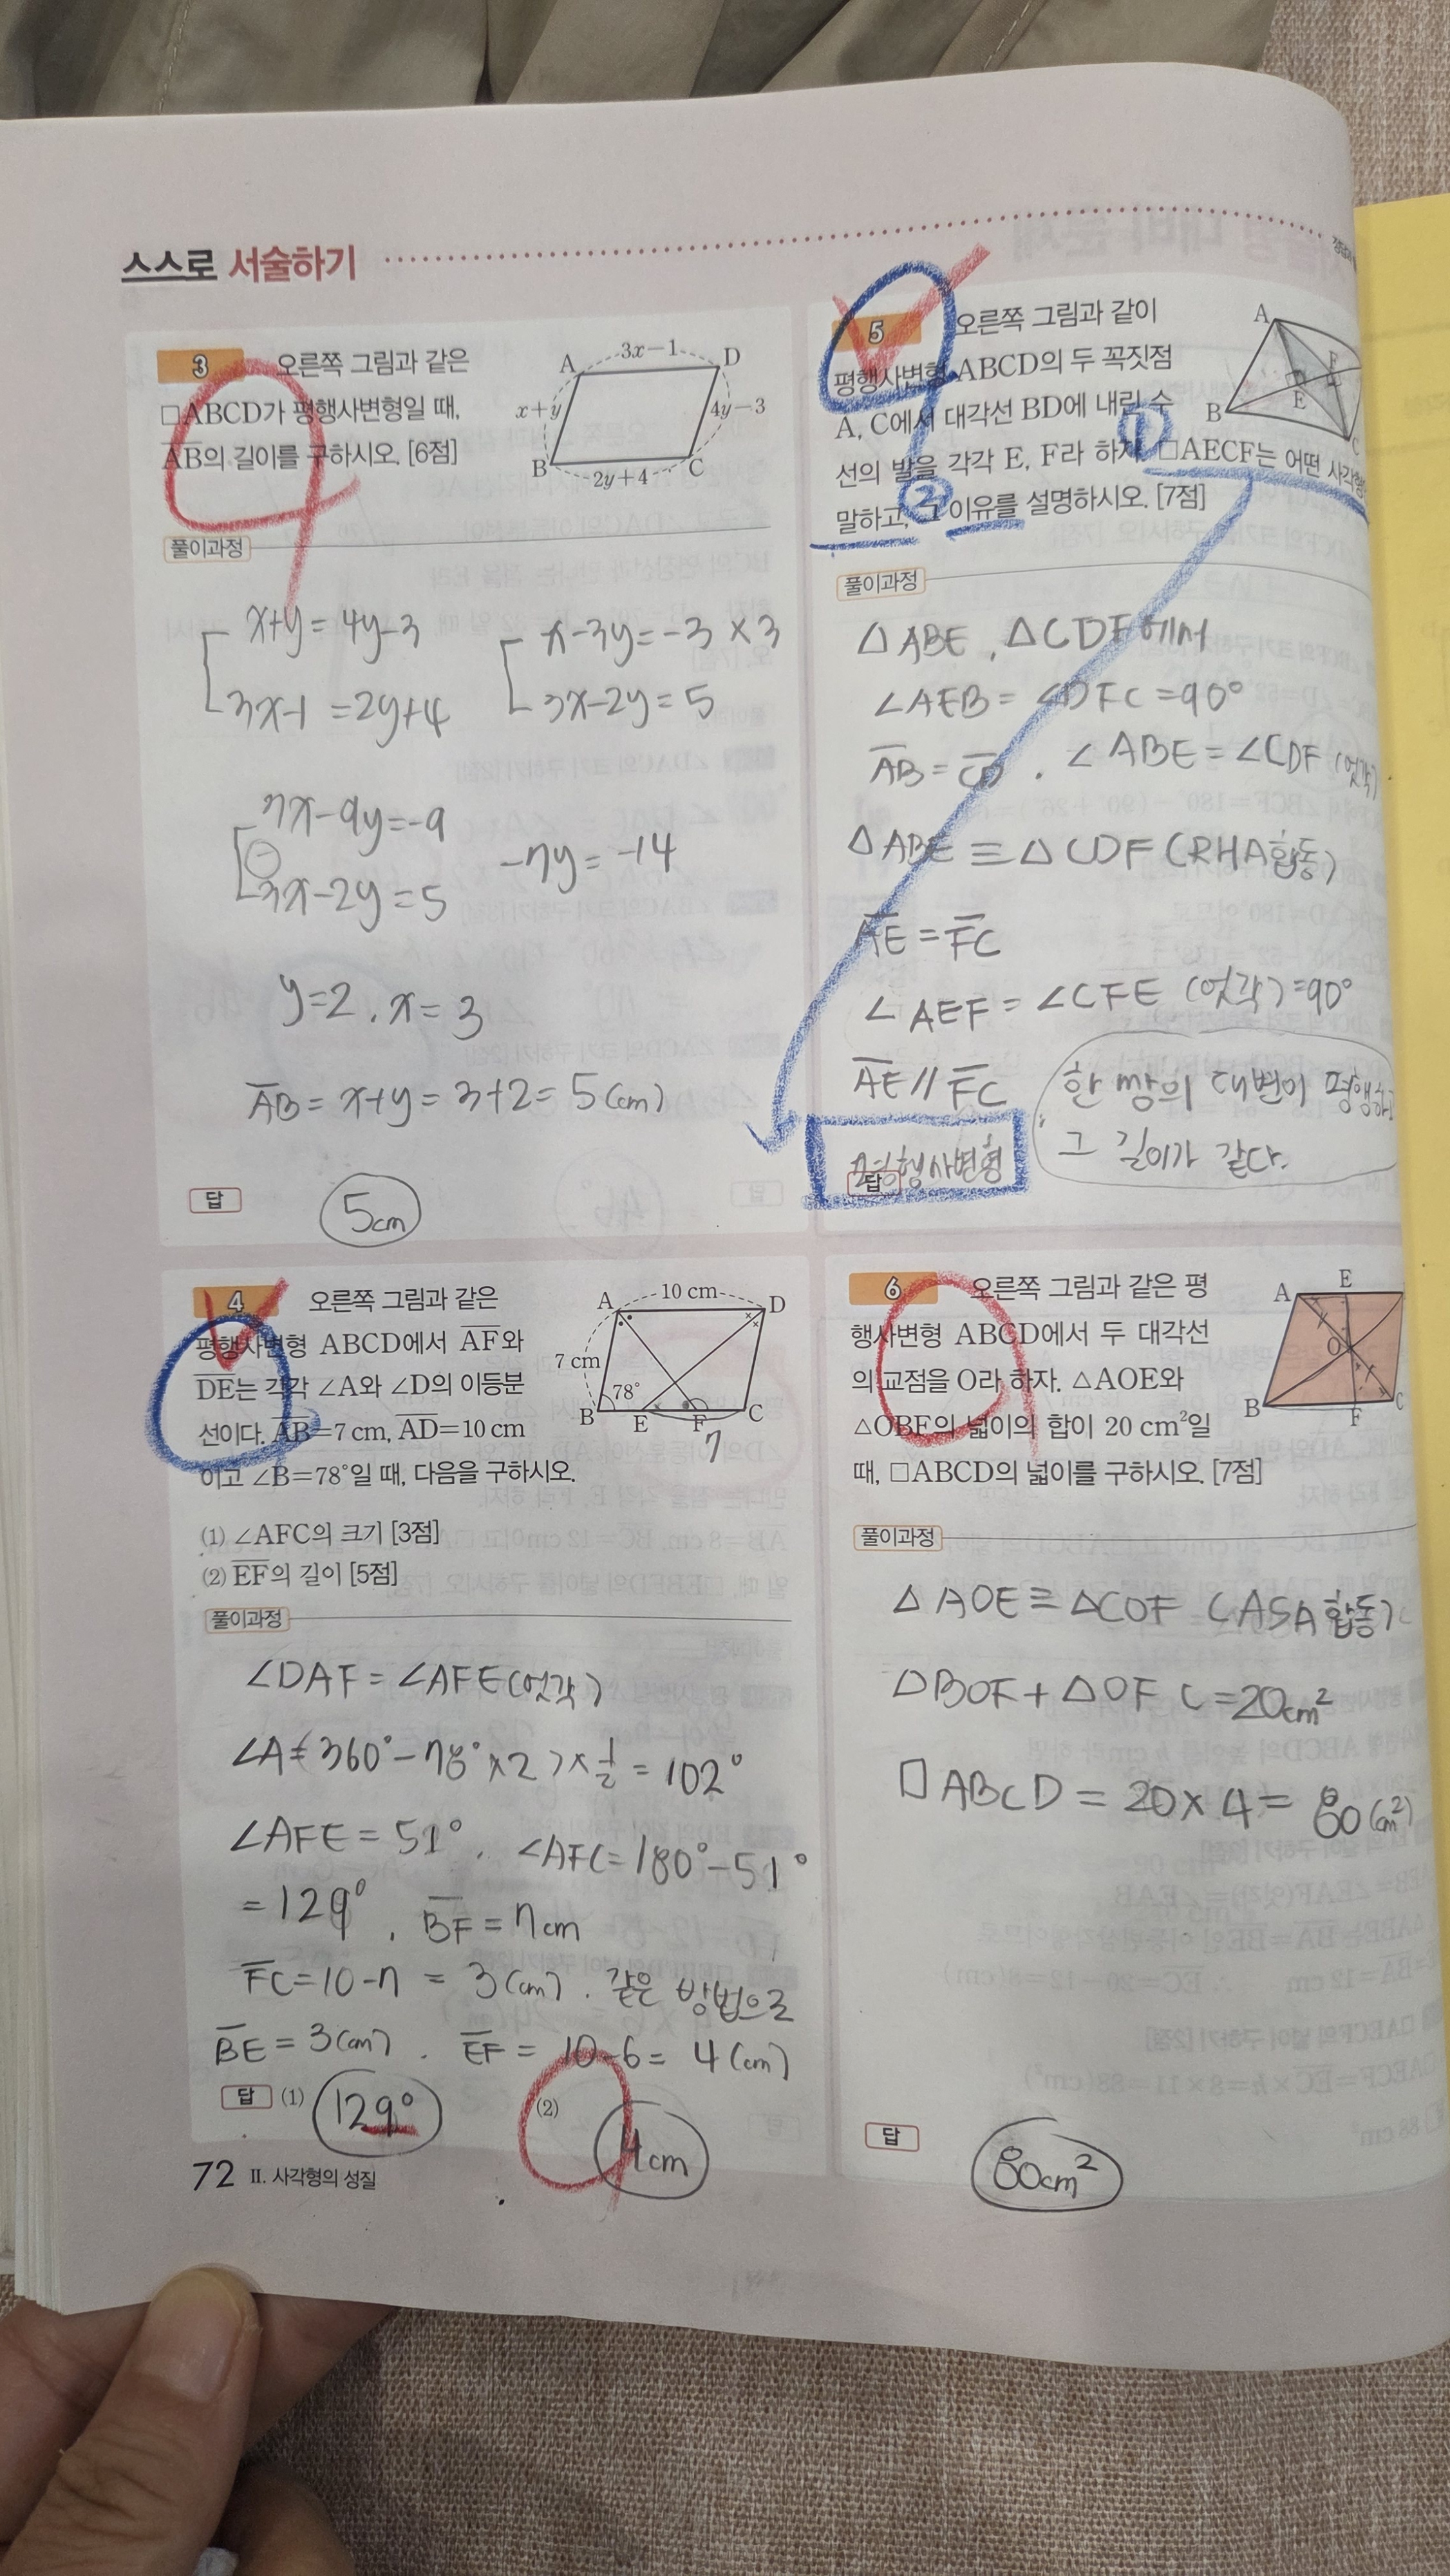 스스로 서술하기
3 오른쪽 그림과 같은
□ABCD가 평행사변형일 때,
AB의 길이를 구하시오. [6점]
A 3x-1 D
x+y 4y-3
B 2y+4 C
풀이과정
x+y=4y-3
3x-1=2y+4
x-3y=-3 ×3
3x-2y=5
3x-9y=-9
3x-2y=5
-7y=-14
y=2, x=3
AB=x+y=3+2=5(cm)
답 5cm
4 오른쪽 그림과 같은
평행사변형 ABCD에서 AF와
DE는 각각 ∠A와 ∠D의 이등분
선이다. AB=7 cm, AD=10 cm
이고 ∠B=78°일 때, 다음을 구하시오.
A 10 cm D
7 cm
78°
B E F C
7
(1) ∠AFC의 크기 [3점]
(2) EF의 길이 [5점]
풀이과정
∠DAF=∠AFE(엇각)
∠A=(360°-78°×2)×1/2=102°
∠AFE=51°, ∠AFC=180°-51°
=129°, BF=7cm
FC=10-7=3(cm). 같은 방법으로
BE=3(cm). EF=10-6=4(cm)
답 (1) 129° (2) 4cm
72 II. 사각형의 성질
5 오른쪽 그림과 같이
평행사변형 ABCD의 두 꼭짓점
A, C에서 대각선 BD에 내린 수
선의 발을 각각 E, F라 하자. ① □AECF는 어떤 사각형
말하고, ② 그 이유를 설명하시오. [7점]
A
F
B E
C
풀이과정
△ABE, △CDF에서
∠AEB=∠DFC=90°
AB=CD, ∠ABE=∠CDF (엇각)
△ABE≡△CDF(RHA합동)
AE=FC
∠AEF=∠CFE (엇각)=90°
AE//FC
한 쌍의 대변이 평행하고
그 길이가 같다.
답 평행사변형
6 오른쪽 그림과 같은 평
행사변형 ABCD에서 두 대각선
의 교점을 O라 하자. △AOE와
△OBF의 넓이의 합이 20 cm²일
때, □ABCD의 넓이를 구하시오. [7점]
A E
O
B F C
풀이과정
△AOE≡△COF (ASA합동)
△BOF+△OFC=20cm²
□ABCD=20×4=80(cm²)
답 80cm²